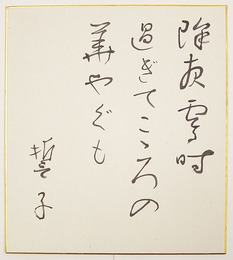 除夜零時
過ぎてこゝろの
華やぐも
誓子